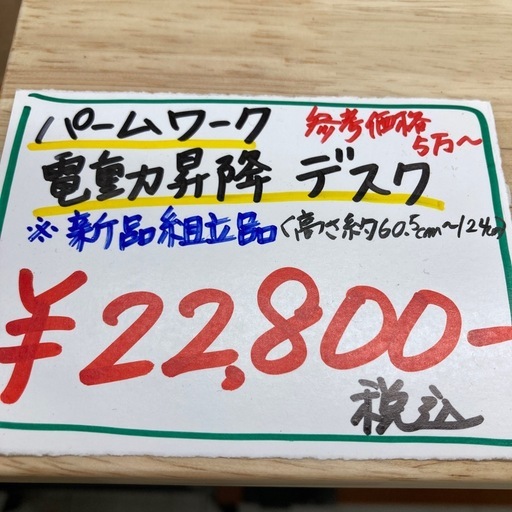 パームワーク 参考価格
5万〜
電動昇降デスク
※新品組立品(高さ約60.5cm〜124cm)
¥22,800-
税込